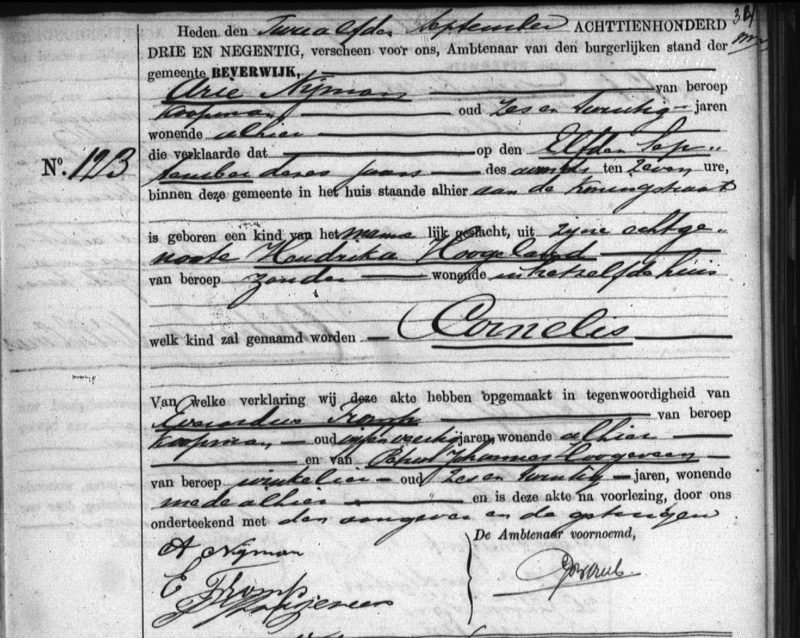 Heden den Twaalfden September ACHTTIENHONDERD
DRIE EN NEGENTIG, verscheen voor ons, Ambtenaar van den burgerlijken stand der
gemeente BEVERWIJK,
Arie Nijman van beroep
koopman oud zes en twintig jaren
wonende alhier
die verklaarde dat op den Elfden Sep
No. 123
tember dezes jaars des avonds ten zeven ure,
binnen deze gemeente in het huis staande alhier aan de Koningstraat
is geboren een kind van het manne lijk geslacht, uit zijne echtge
noote Hendrika Hoogeland
van beroep zonder wonende in hetzelfde huis
welk kind zal genaamd worden Cornelis
Van welke verklaring wij deze akte hebben opgemaakt in tegenwoordigheid van
Everardus Tromp van beroep
koopman oud veertig jaren, wonende alhier
en van Petrus Johannes Hoogeveen
van beroep winkelier oud zes en twintig jaren, wonende
mede alhier en is deze akte na voorlezing, door ons
onderteekend met den aangever en de getuigen
De Ambtenaar voornoemd,
A Nijman
E Tromp